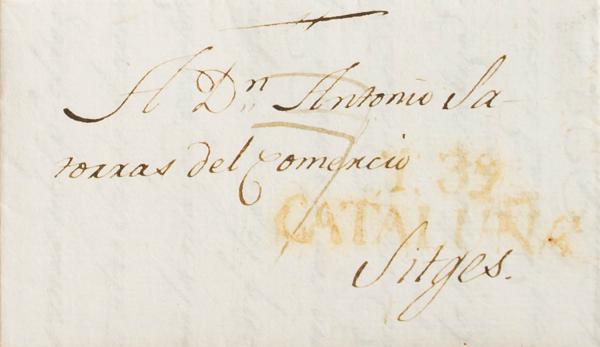 A Dⁿ Antonio Sa-
torras del Comercio
T. 39
CATALUÑA
Sitges.